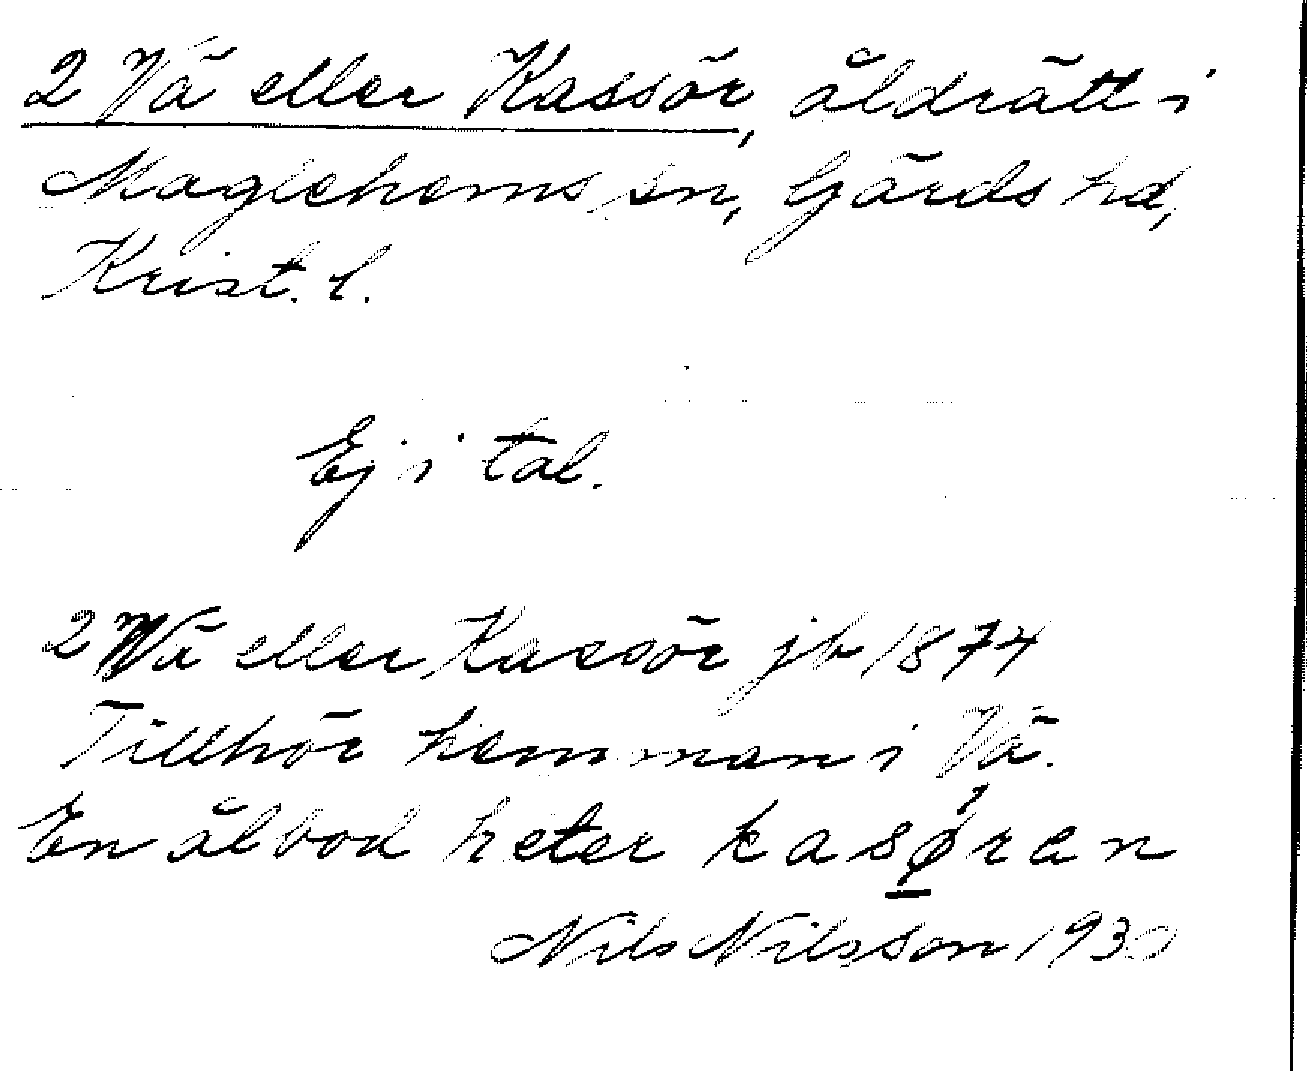 2 Vä eller Kassör, åldrätt i
Maglehems sn, Gärds hd,
Krist. l.
Ej i tal.
2 Wä eller Kassör jb 1874
Tillhör hemman i Vä.
En ålbod heter kasøran
Nils Nilsson 1930